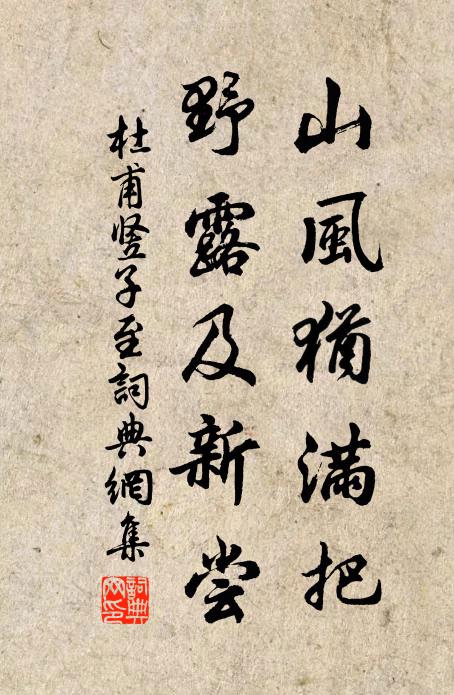 山風猶滿把
野露及新嘗
杜甫豎子至詞典網集
詞典網印